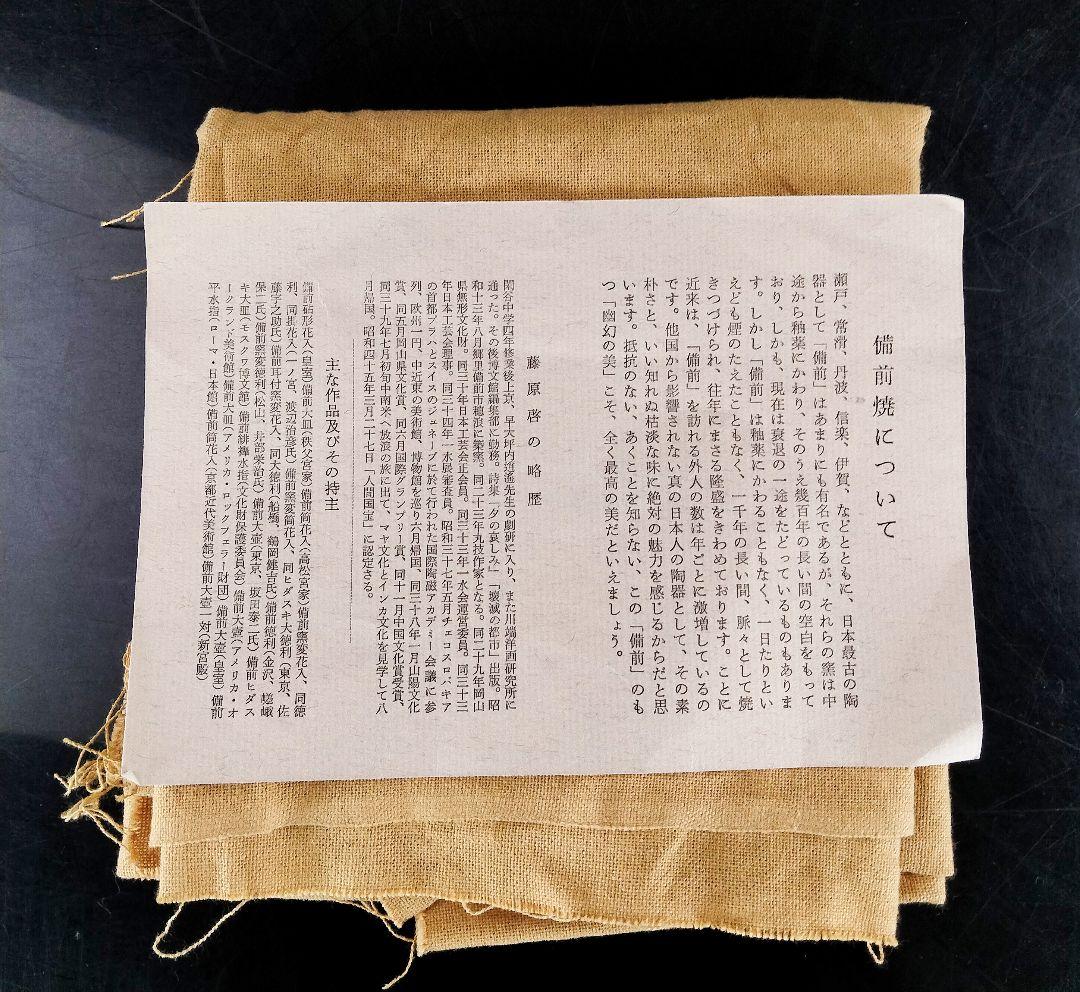 備前焼について
瀬戸、常滑、丹波、信楽、伊賀、などとともに、日本最古の陶
器として「備前」はあまりにも有名であるが、それらの窯は中
途から釉薬にかわり、そのうえ幾百年の長い間の空白をもって
おり、しかも、現在は衰退の一途をたどっているものもありま
す。しかし「備前」は釉薬にかわることもなく、一日たりとい
えども煙のたえたこともなく、一千年の長い間、脈々として焼
きつづけられ、往年にまさる隆盛をきわめております。ことに
近来は、「備前」を訪れる外人の数は年ごとに激増しているの
です。他国から影響されない真の日本人の陶器として、その素
朴さと、いい知れぬ枯淡な味に絶対の魅力を感じるからだと思
います。抵抗のない、あくことを知らない、この「備前」のも
つ「幽幻の美」こそ、全く最高の美だといえましょう。
藤原啓の略歴
閑谷中学四年修業後上京、早大坪内逍遙先生の劇研に入り、また川端洋画研究所に
通った。その後博文館編集部に勤務。詩集「夕の哀しみ」「壊滅の都市」出版。昭
和十三年八月郷里備前市穂浪に築窯。同二十三年丸技作家となる。同二十九年岡山
県無形文化財。同三十年日本工芸会正会員。同三十三年一水会運営委員。同三十三
年日本工芸会理事。同三十四年一水展審査員。昭和三十七年五月チェコスロバキア
の首都プラハとスイスのジュネーブに於て行われた国際陶磁アカデミー会議に参
列、欧州一円、中近東の美術館、博物館を巡り六月帰国、同三十八年一月山陽文化
賞、同五月岡山県文化賞、同六月国際グランプリー賞、同十一月中国文化賞受賞、
同三十九年七月初旬中南米へ放浪の旅に出て、マヤ文化とインカ文化を見学して八
月帰国。昭和四十五年三月二十七日「人間国宝」に認定さる。
主な作品及びその持主
備前砧形花入(皇室)備前大皿(秩父宮家)備前筒花入(高松宮家)備前窯変花入、同徳
利、同掛花入(一ノ宮、渡辺治彦氏)備前窯変筒花入、同ヒダスキ大徳利(東京、佐
藤宇之助氏)備前耳付窯変花入、同大徳利(船橋、鶴岡雄吉氏)備前徳利(金沢、嵯峨
保二氏)備前窯変徳利(松山、井部栄治氏)備前大壷(東京、坂田泰二氏)備前ヒダス
キ大皿(モスクワ博文館)備前緋襷水指(文化財保護委員会)備前大壷(アメリカ・オ
ークランド美術館)備前大皿(アメリカ・ロックフェラー財団)備前大壷(皇室)備前
平水指(ローマ・日本館)備前筒花入(京都近代美術館)備前大壷一対(新宮殿)